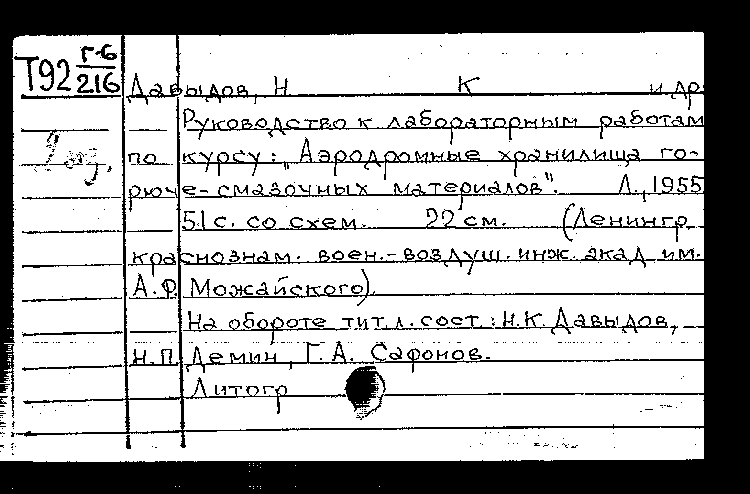 Т92 г-6
216
Давыдов, Н К и др
Руководство к лабораторным работам
2 экз. по курсу: „Аэродромные хранилища го-
рюче-смазочных материалов". Л., 1955
51 с. со схем. 22 см. (Ленингр
краснознам. воен.-воздуш. инж. акад им.
А.Ф. Можайского).
На обороте тит. л. сост.: Н.К. Давыдов,
Н.П. Демин, Г. А. Сафонов.
Литогр